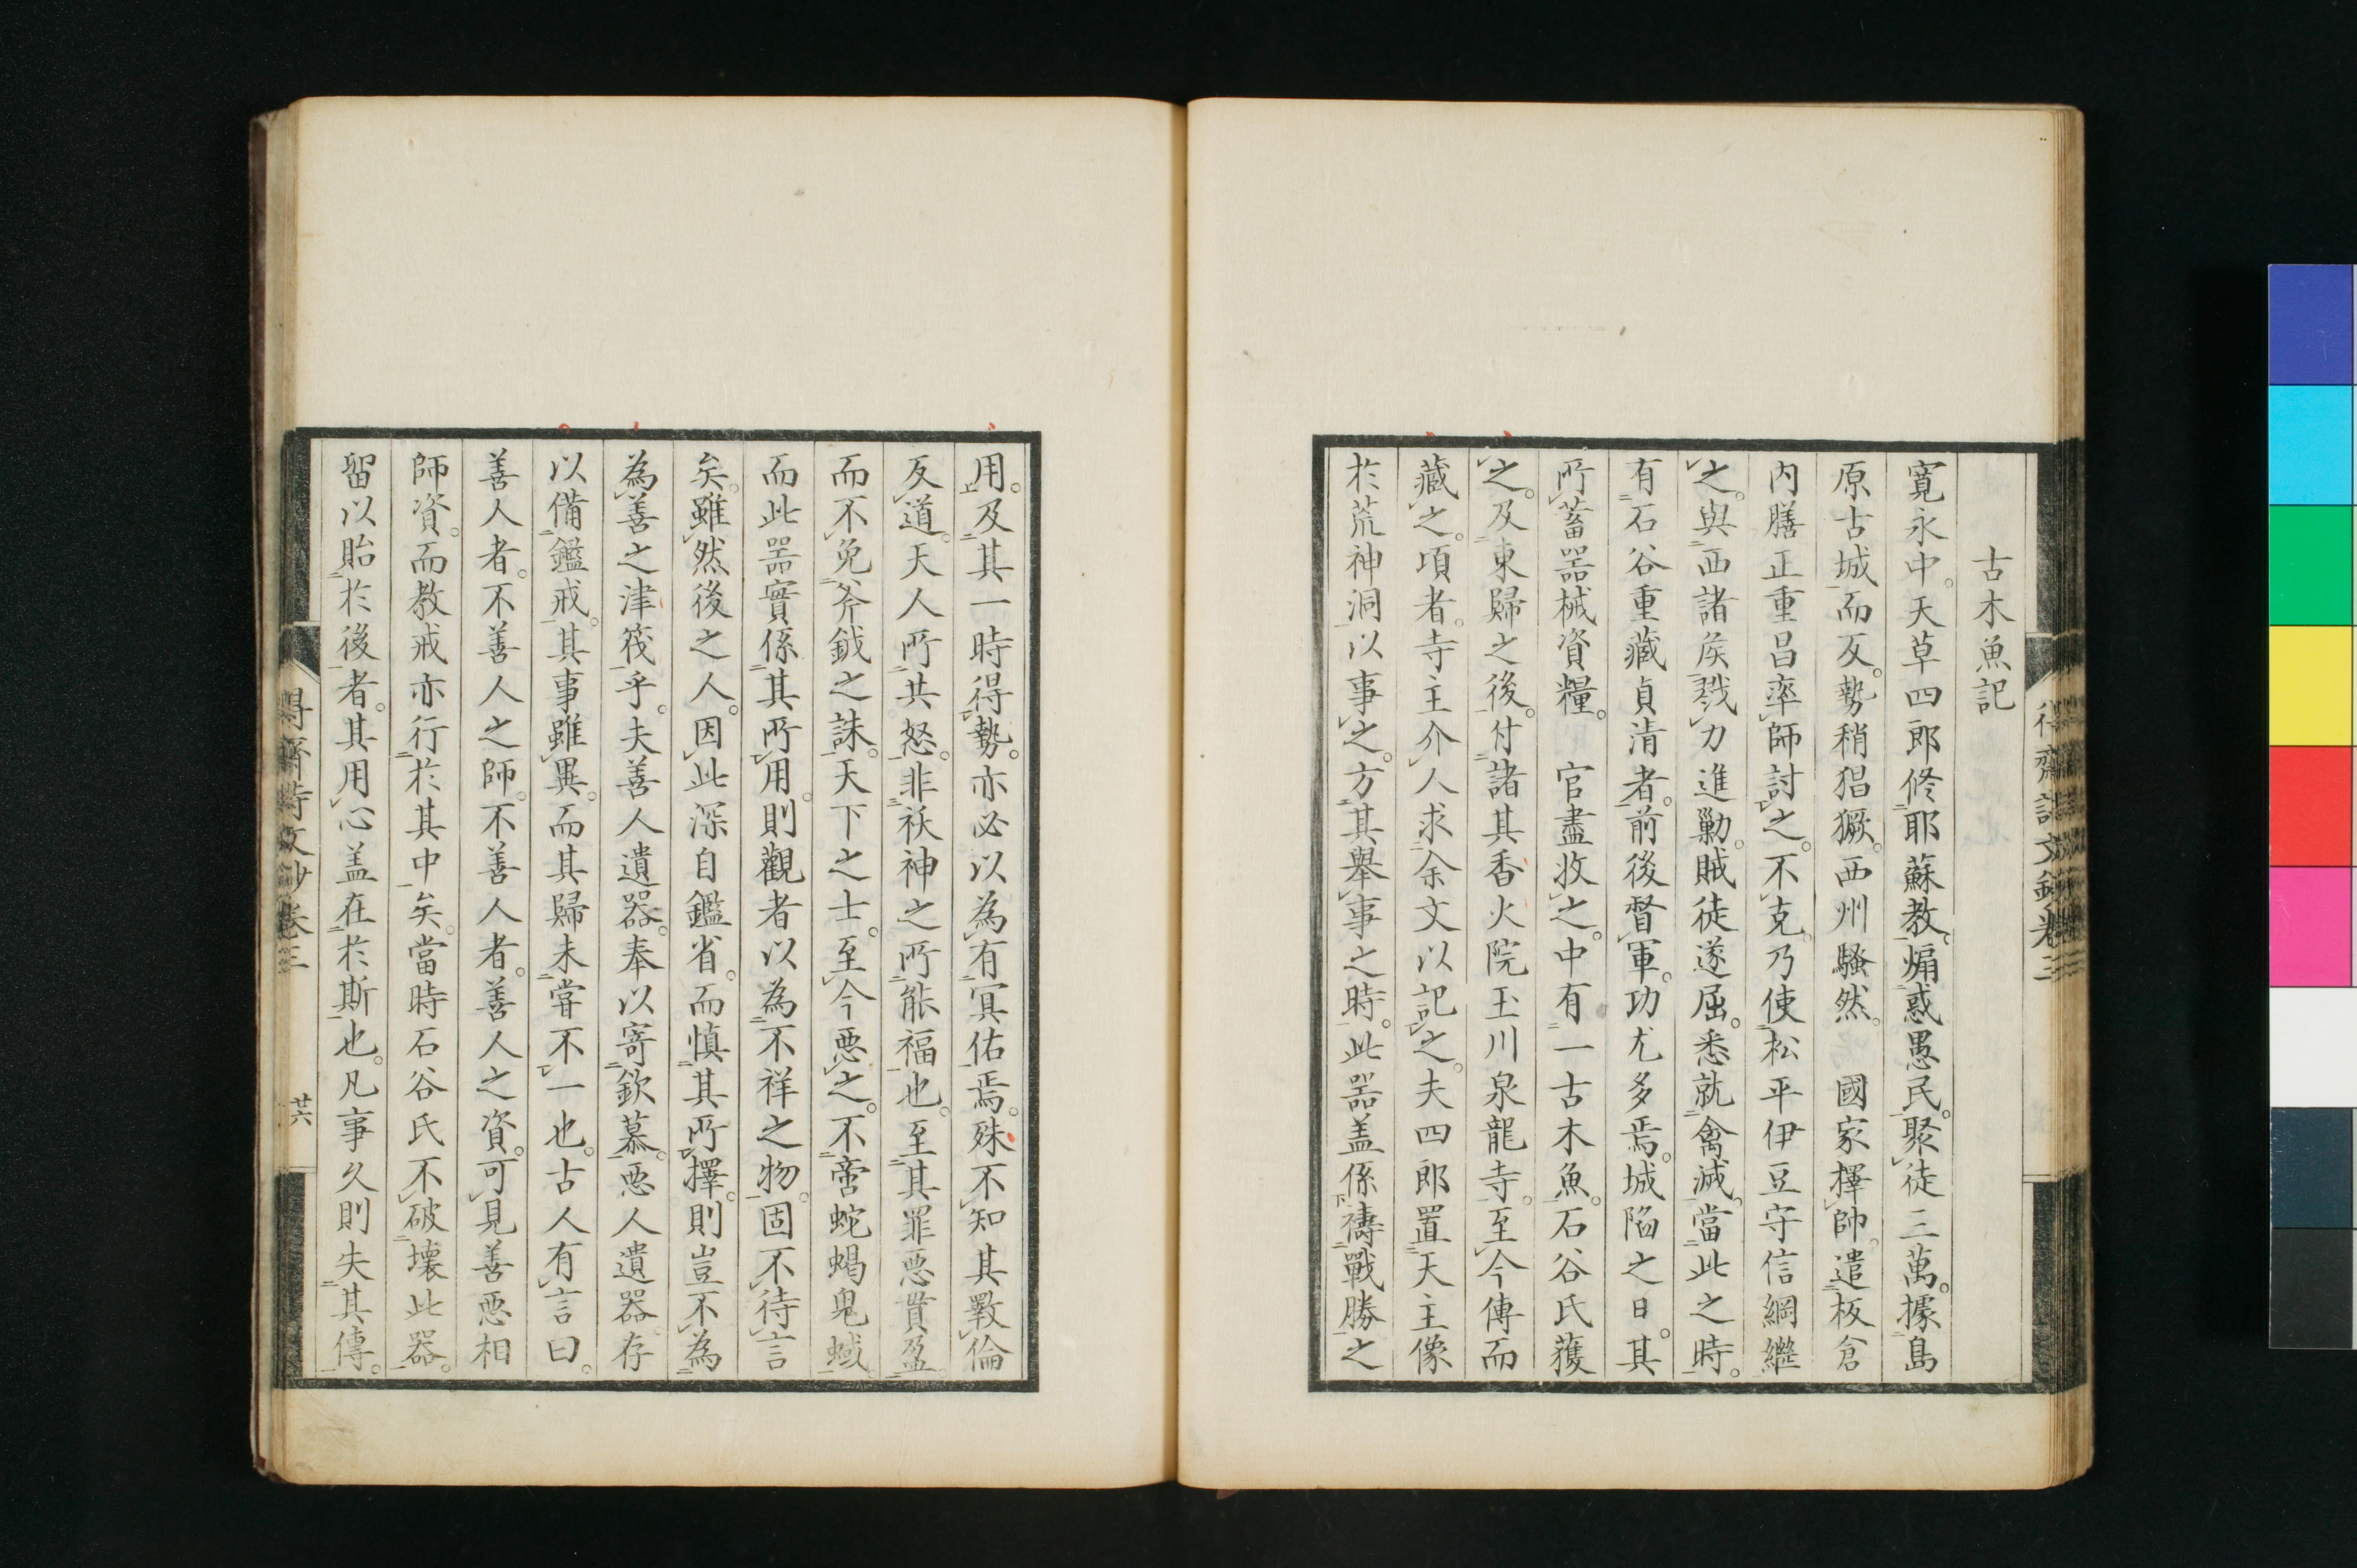 古木魚記
寛永中。天草四郎修耶蘇教。煽惑愚民。聚徒三萬。據島
原古城而反。勢稍猖獗。西州騷然。　國家擇帥。遣板倉
内膳正重昌率師討之。不克。乃使松平伊豆守信綱繼
之。與西諸侯戮力進勦。賊徒遂屈。悉就禽滅。當此之時。
有石谷重藏貞清者。前後督軍。功尤多焉。城陷之日。其
所蓄器械資糧。　官盡收之。中有一古木魚。石谷氏獲
之。及東歸之後。付諸其香火院玉川泉龍寺。至今傳而
藏之。頃者。寺主介人求余文以記之。夫四郎置天主像
於荒神洞以事之。方其舉事之時。此器盖係禱戰勝之
用。及其一時得勢。亦必以為有冥佑焉。殊不知其斁倫
反道。天人所共怒。非祅神之所能福也。至其罪惡貫盈。
而不免斧鉞之誅。天下之士。至今惡之。不啻蛇蝎鬼蜮。
而此器實係其所用。則觀者以為不祥之物。固不待言
矣。雖然後之人。因此深自鑑省。而慎其所擇。則豈不為
為善之津筏乎。夫善人遺器。奉以寄欽慕。惡人遺器。存
以備鑑戒。其事雖異。而其歸未甞不一也。古人有言曰。
善人者。不善人之師。不善人者。善人之資。可見善惡相
師資。而教戒亦行於其中矣。當時石谷氏不破壞此器。
留以貽於後者。其用心盖在於斯也。凡事久則失其傳。
得齋詩文鈔卷三
廿六